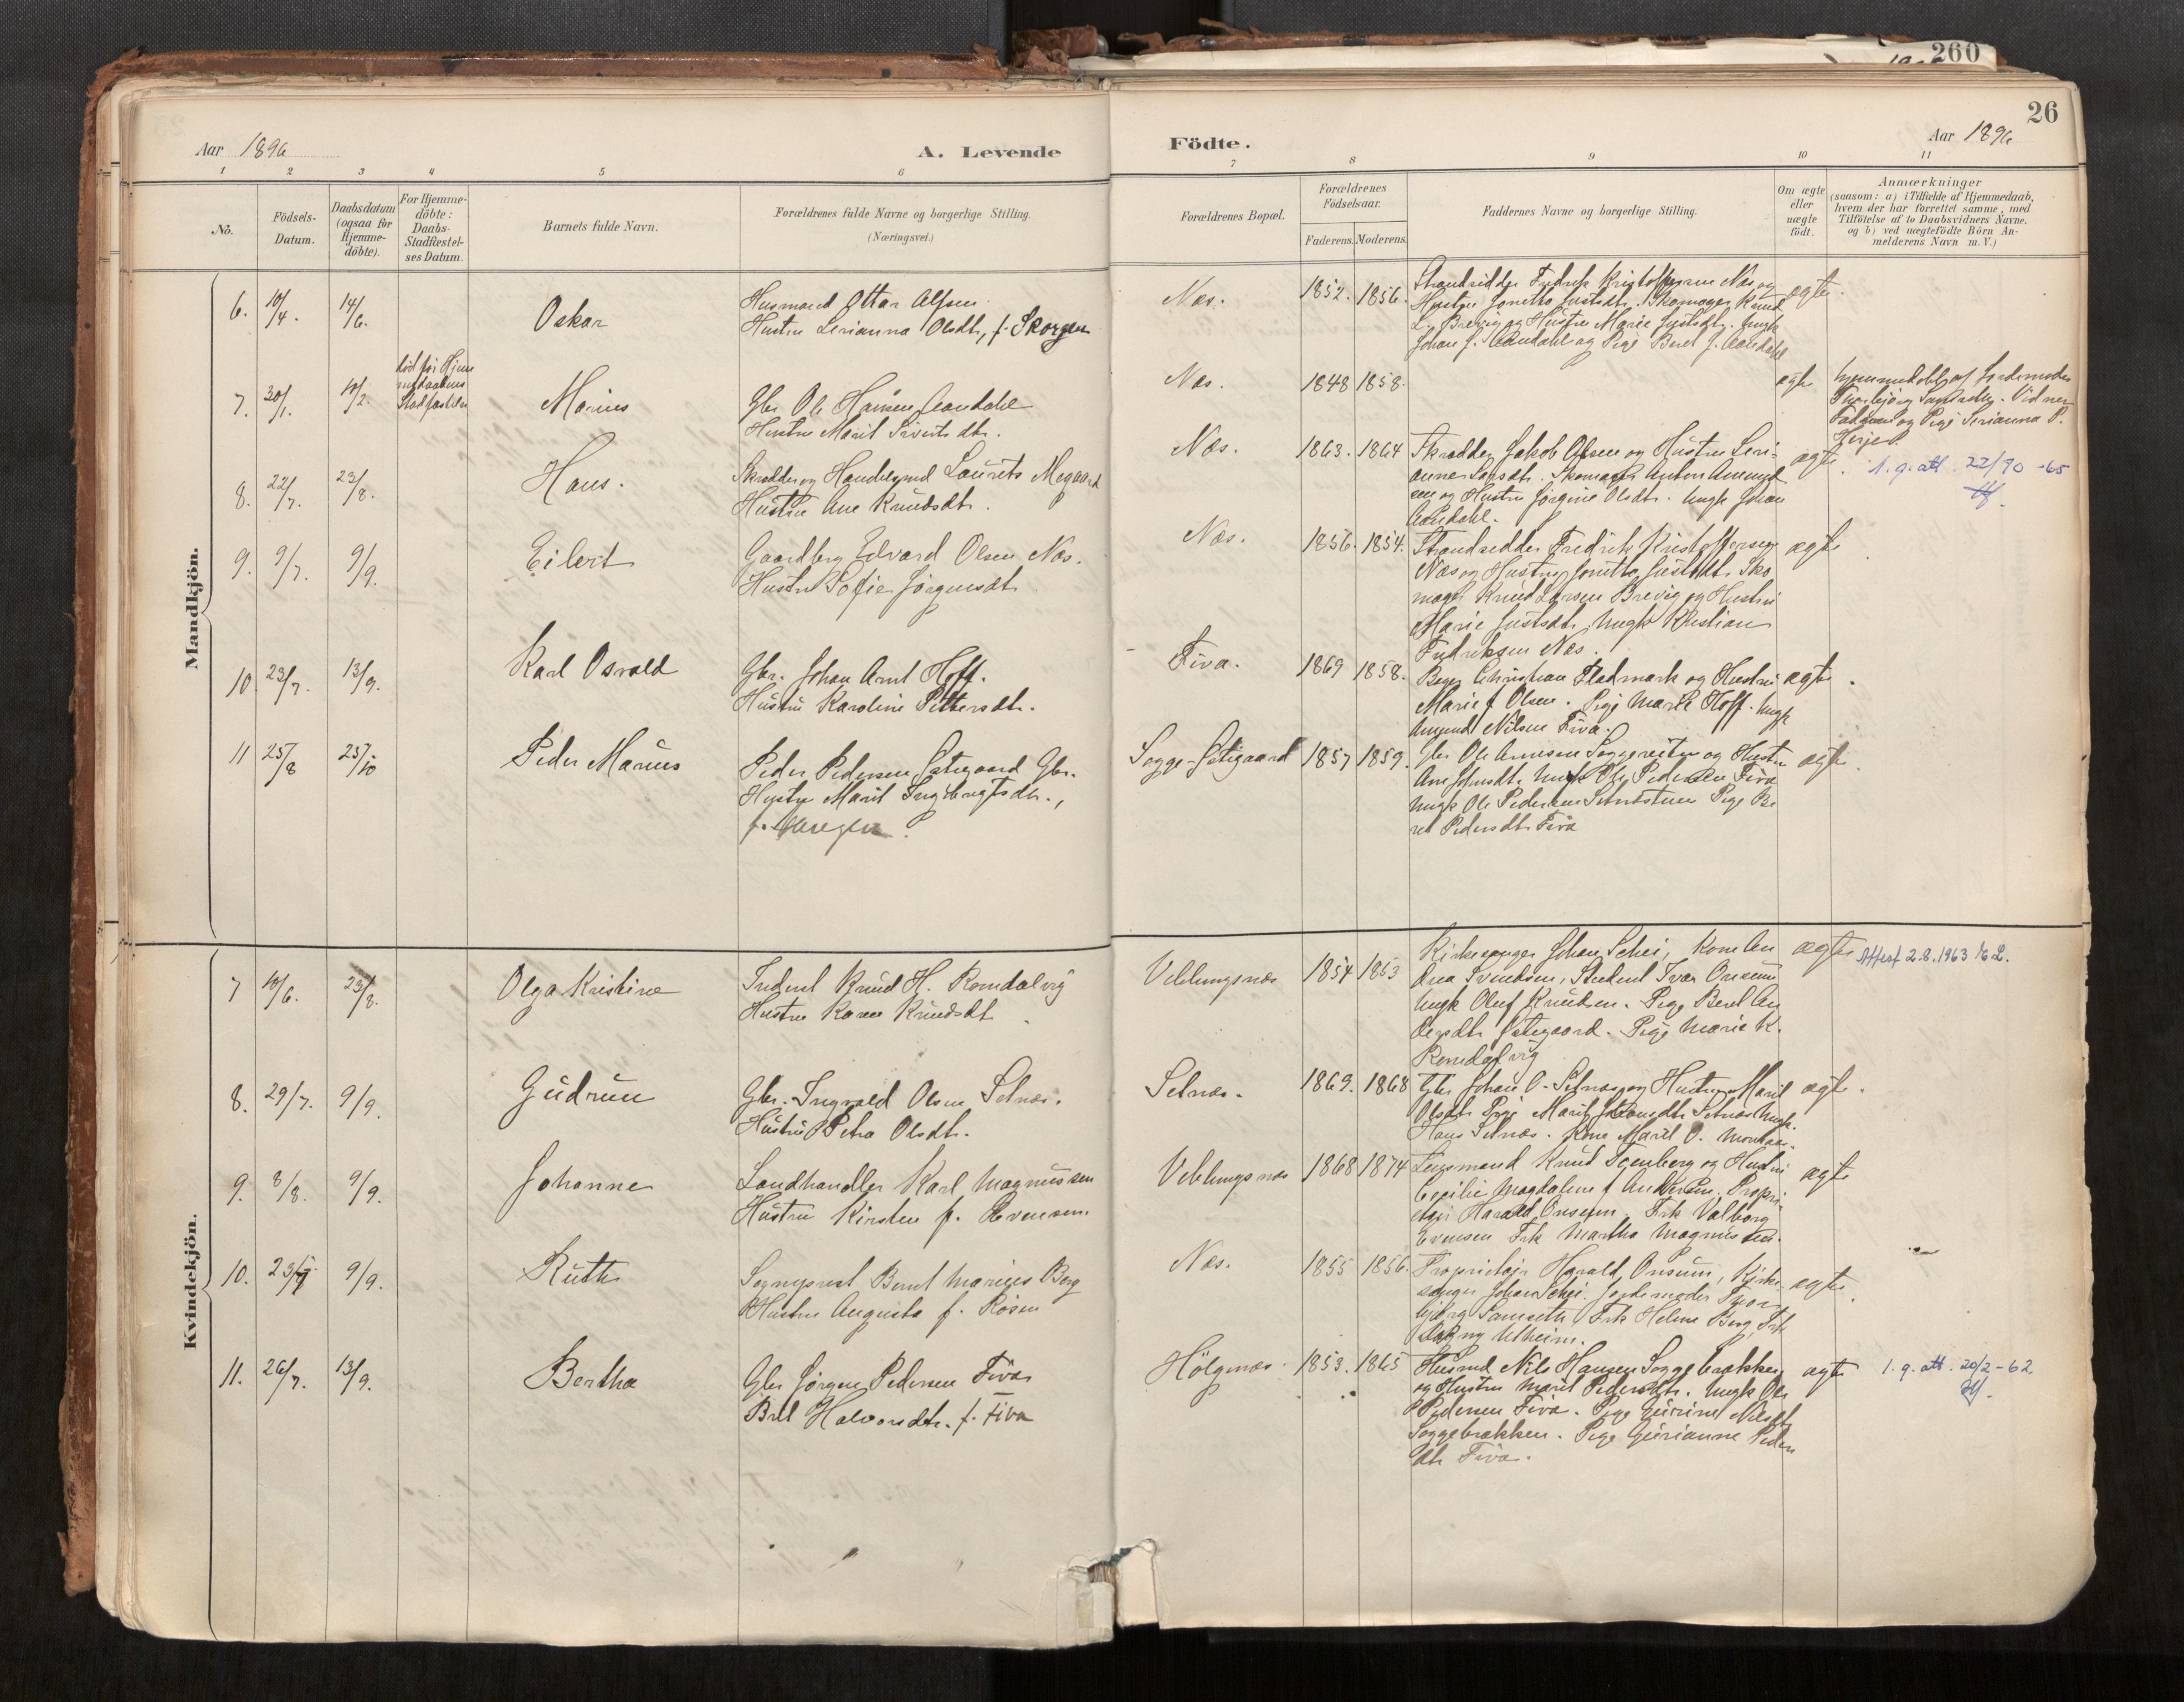 260
26
Aar 1896
A. Levende
Födte.
Aar 1896
1 2 3 4 5 6 7 8 9 10 11
No.
Födsels-
Datum.
Daabsdatum
(ogsaa for
Hjemme-
döbte).
For Hjemme-
döbte:
Daabs-
Stadfæstel-
ses Datum.
Barnets fulde Navn.
Forældrenes fulde Navne og borgerlige Stilling.
(Næringsvei.)
Forældrenes Bopæl.
Forældrenes
Födselsaar.
Faderens. Moderens.
Faddernes Navne og borgerlige Stilling.
Om ægte
eller
uægte
födt.
Anmærkninger
(saasom: a) i Tilfælde af Hjemmedaab,
hvem der har forrettet samme, med
Tilföielse af to Daabsvidners Navne.
og b) ved uægtefödte Börn An-
melderens Navn m. V.)
Mandkjön.
6. 10/4. 14/6. Oskar
Husmand Ottar Alfsen
Hustru Serianna Olsdtr, f. Skorgen
Næs. 1852. 1856.
Strandsidder Fredrik Kristoffersen Næs og
Hustru Jonetta Justsdtr. Skomager Knud
L. Brevig og Hustru Marie Justsdtr. Ungk
Johan J. Aandahl og Pige Beret J. Aandahl
ægte.
7. 30/1. 10/2.
død før Hjem
medaabens
Stadfæstelse
Marius
Gbr Ole Hansen Aandahl
Hustru Marit Sivertsdtr.
Næs. 1848 1858.
ægte
Hjemmedøbt af Jordemoder
Thorbjørg Samseth. Vidner
Faderen og Pige Serianna P.
Herje
8. 22/7. 23/8. Hans.
Skrædder og Handelsmd Laurits Megaard
Hustru Ane Knudsdtr.
Næs. 1863. 1864
Skrædder Jakob Olsen og Hustru Seri-
anne Larsdtr. Skomager Anton Amund
sen og Hustru Jørgine Olsdtr. Ungk Johan
Aandahl.
ægte.
1. g. att. 22/90 -65
9. 9/7. 9/9. Eilert
Gaardbrg Edvard Olsen Næs.
Hustru Sofie Jørgensdtr
Næs. 1856. 1854.
Strandsidder Fredrik Kristoffersen
Næs og Hustru Jonetta Justsdtr. Sko
mager Knud Larsen Brevig og Hustru
Marie Justsdtr. Ungk Kristian
Fredriksen Næs.
ægte
10. 23/7. 13/9. Karl Osvald
Gbr. Johan Arnt Hoff.
Hustru Karoline Pettersdtr.
Fiva. 1869 1858.
Bager Christian Fladmark og Hustru
Marie f Olsen. Pige Marie Hoff. Ungk
Amund Nilsen Fiva.
ægte.
11 25/8 25/10 Peder Marius
Peder Pedersen Østigaard Gbr.
Hustru Marit Ingebrigtsdtr.,
Sogge-Østigaard 1857 1859.
Gbr Ole Arnesen Soggesæter og Hustru
Ane Johnsdtr. Ungk Ole Pedersen Fiva
Ungk Ole Pedersen Setnæstuen Pige Be
ret Pedersdtr Fiva
ægte.
Kvindekjön.
7 10/6. 23/8. Olga Kristine
Inderst Knud H. Romdalsvig
Hustru Karen Knudsdtr
Veblungsnæs 1854 1853
Kirkesanger Johan Schei, Kone An
drea Svendsen, Student Ivar Onsum
Ungk Oluf Knudsen. Pige Beret An
dersdtr Østegaard. Pige Marie K.
Romdalsvig
ægte
Attest 2.8.1963
8. 29/7. 9/9. Gudrun
Gbr. Ingvald Olsen Setnæs.
Hustru Petra Olsdtr.
Setnæs. 1869. 1868
Gbr Johan O. Setnæs og Hustru Marit
Olsdtr Pige Marit Johansdtr Setnæs Ungk.
Hans Setnæs. Kone Marit O. Monsaas.
ægte.
9. 8/8. 9/9. Johanne
Landhandler Karl Magnussen
Hustru Kirsten f. Evensen.
Veblungsnæs 1868 1874
Lensmand Knud Isenberg og Hustru
Cecilie Magdalene f Andersen. Propri-
etær Harald Onsum. Frk Valborg
Evensen Frk Martha Magnussen.
ægte
10. 9/9. Ruth
Sogneprest Bernt Marius Berg
Hustru Augusta f. Rosen
Næs. 1855 1856.
Proprietær Harald Onsum, Kirke-
sanger Johan Schei. Jordemoder Thor
bjørg Samseth Frk Helene Berg, Frk
Dagny Utheim.
ægte.
11. 26/7. 13/9. Bertha
Gbr Jørgen Pedersen Fiva
Bret Halvorsdtr. f. Fiva
Hølgenæs 1853. 1865
Husmd Nils Hansen Soggebrækken
og Hustru Marit Pedersdtr. Ungk Ole
Pedersen Fiva. Pige Gurine Nilsdt
Soggebrækken. Pige Gurianne Peders
dtr Fiva.
ægte
1. g. att. 20/2 - 62.